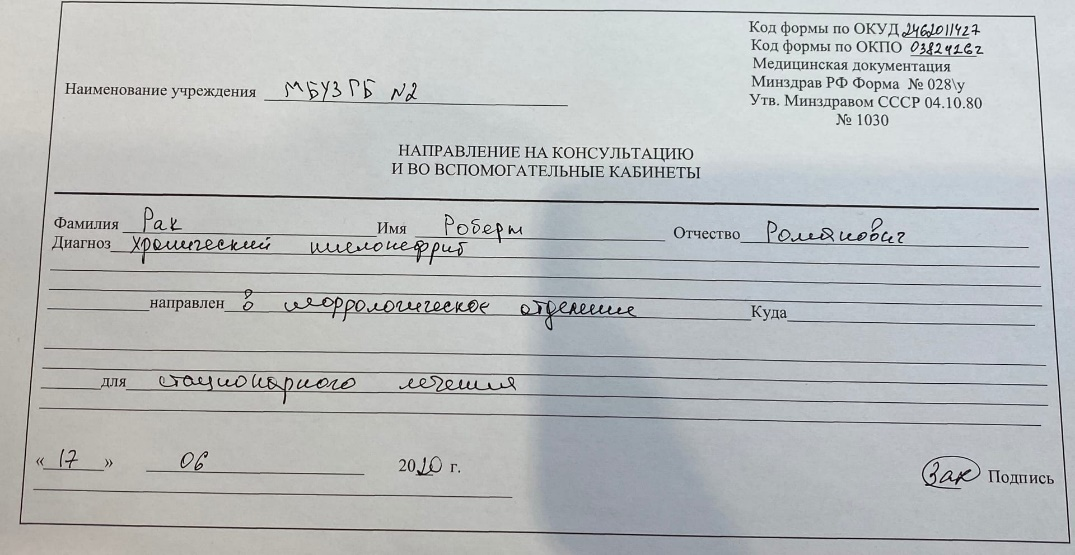 Код формы по ОКУД 2462011427
Код формы по ОКПО 03824262
Медицинская документация
Минздрав РФ Форма № 028\у
Утв. Минздравом СССР 04.10.80
№ 1030
Наименование учреждения МБУЗ ГБ №2
НАПРАВЛЕНИЕ НА КОНСУЛЬТАЦИЮ
И ВО ВСПОМОГАТЕЛЬНЫЕ КАБИНЕТЫ
Фамилия Рак Имя Роберт Отчество Романович
Диагноз Хронический пиелонефрит
направлен в отделение Куда
для стационарного лечения
«17» 06 2020 г. Подпись